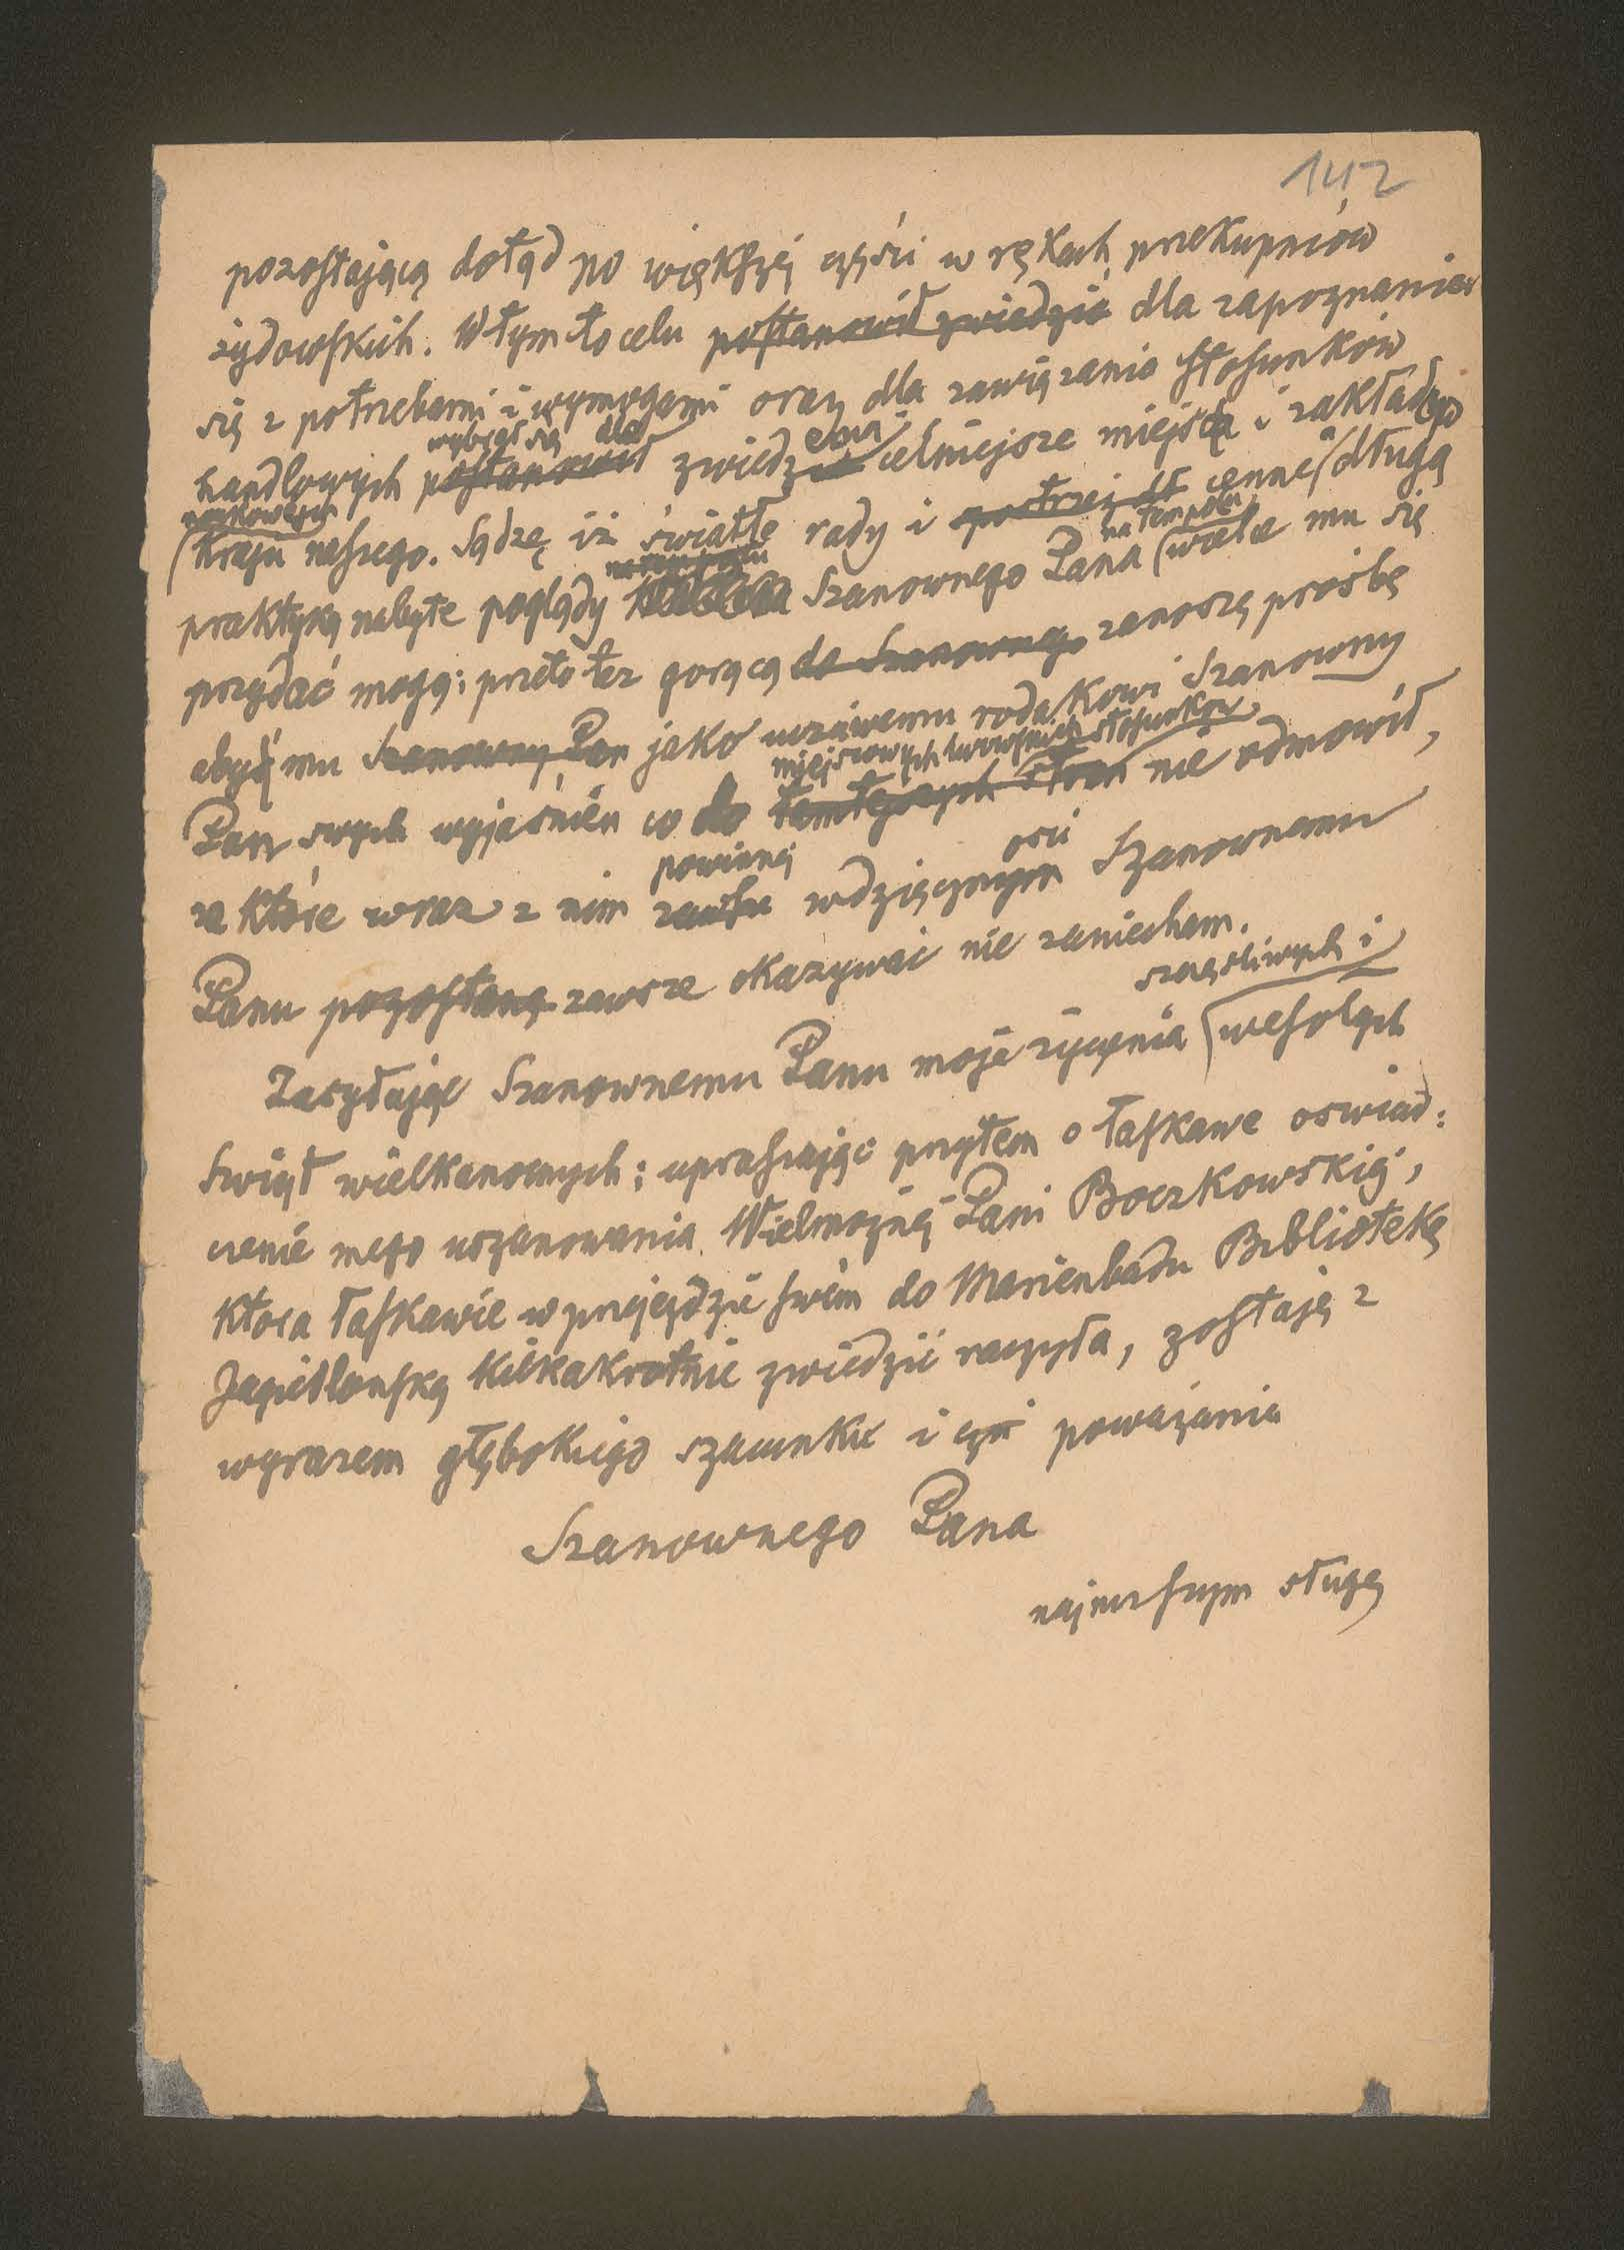 142
pozostającą dotąd po większéj części w rękach przekupniów
żydowskich. W tym to celu postanowił zwiedzić dla zapoznania
się z potrzebami i wymogami oraz dla zawiązania stosunków
wybrał się dla
handlowych postanowił zwiedzenia celniejsze miejsca i zakładów
naukowych
kraju naszego. Sądzę iż światłe rady i cenne długą
na tem polu
praktyką nabyte poglądy Szanownego Pana wiele mu się
przydać mogą; przeto też gorącą do Szanownego zanoszę prośbę
abyś mu Szanowny Pan jako uczciwemu rodakowi Szanowny
miejscowych stosunków
Pan swych wyjaśnień co do tamtejszych stron nie odmówił,
powinnej ości
za które wraz z nim zawsze wdzięcznym Szanownemu
Panu pozostanę zawsze okazywać nie zaniecham.
szczęśliwych i
Zasyłając Szanownemu Panu moje życzenia wesołych
Świąt wielkanocnych; upraszając przytem o łaskawe oswiad:
czenie mego uszanowania Wielmożnéj Pani Boczkowskiéj,
która łaskawie w przejeździe swém do Marienbadu Bibliotekę
Jagiellonską kilkakrotnie zwiedzić raczyła, zostaję z
wyrazem głębokiego szacunku i czci poważania
Szanownego Pana
najniższym sługą